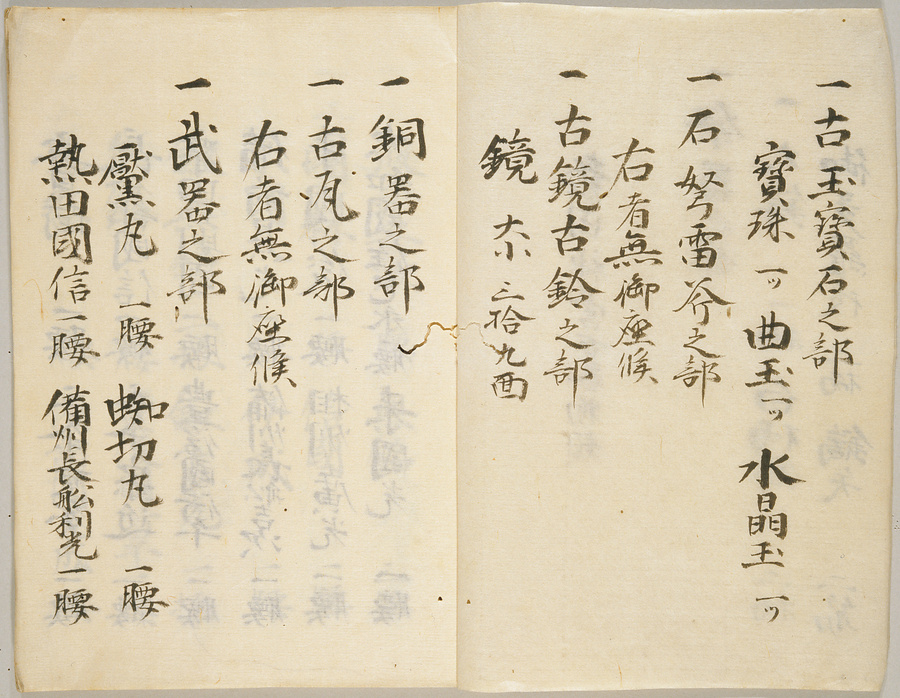 一古玉寶石之部
寶珠 一ツ 曲玉 一ツ 水晶玉 一ツ
一石弩雷斧之部
右者無御座候
一古鏡古鈴之部
鏡 大小 三拾九面
一銅器之部
一古瓦之部
右者無御座候
一武器之部
黶丸 一腰 蜘切丸 一腰
熱田國信一腰 備州長舩利光一腰